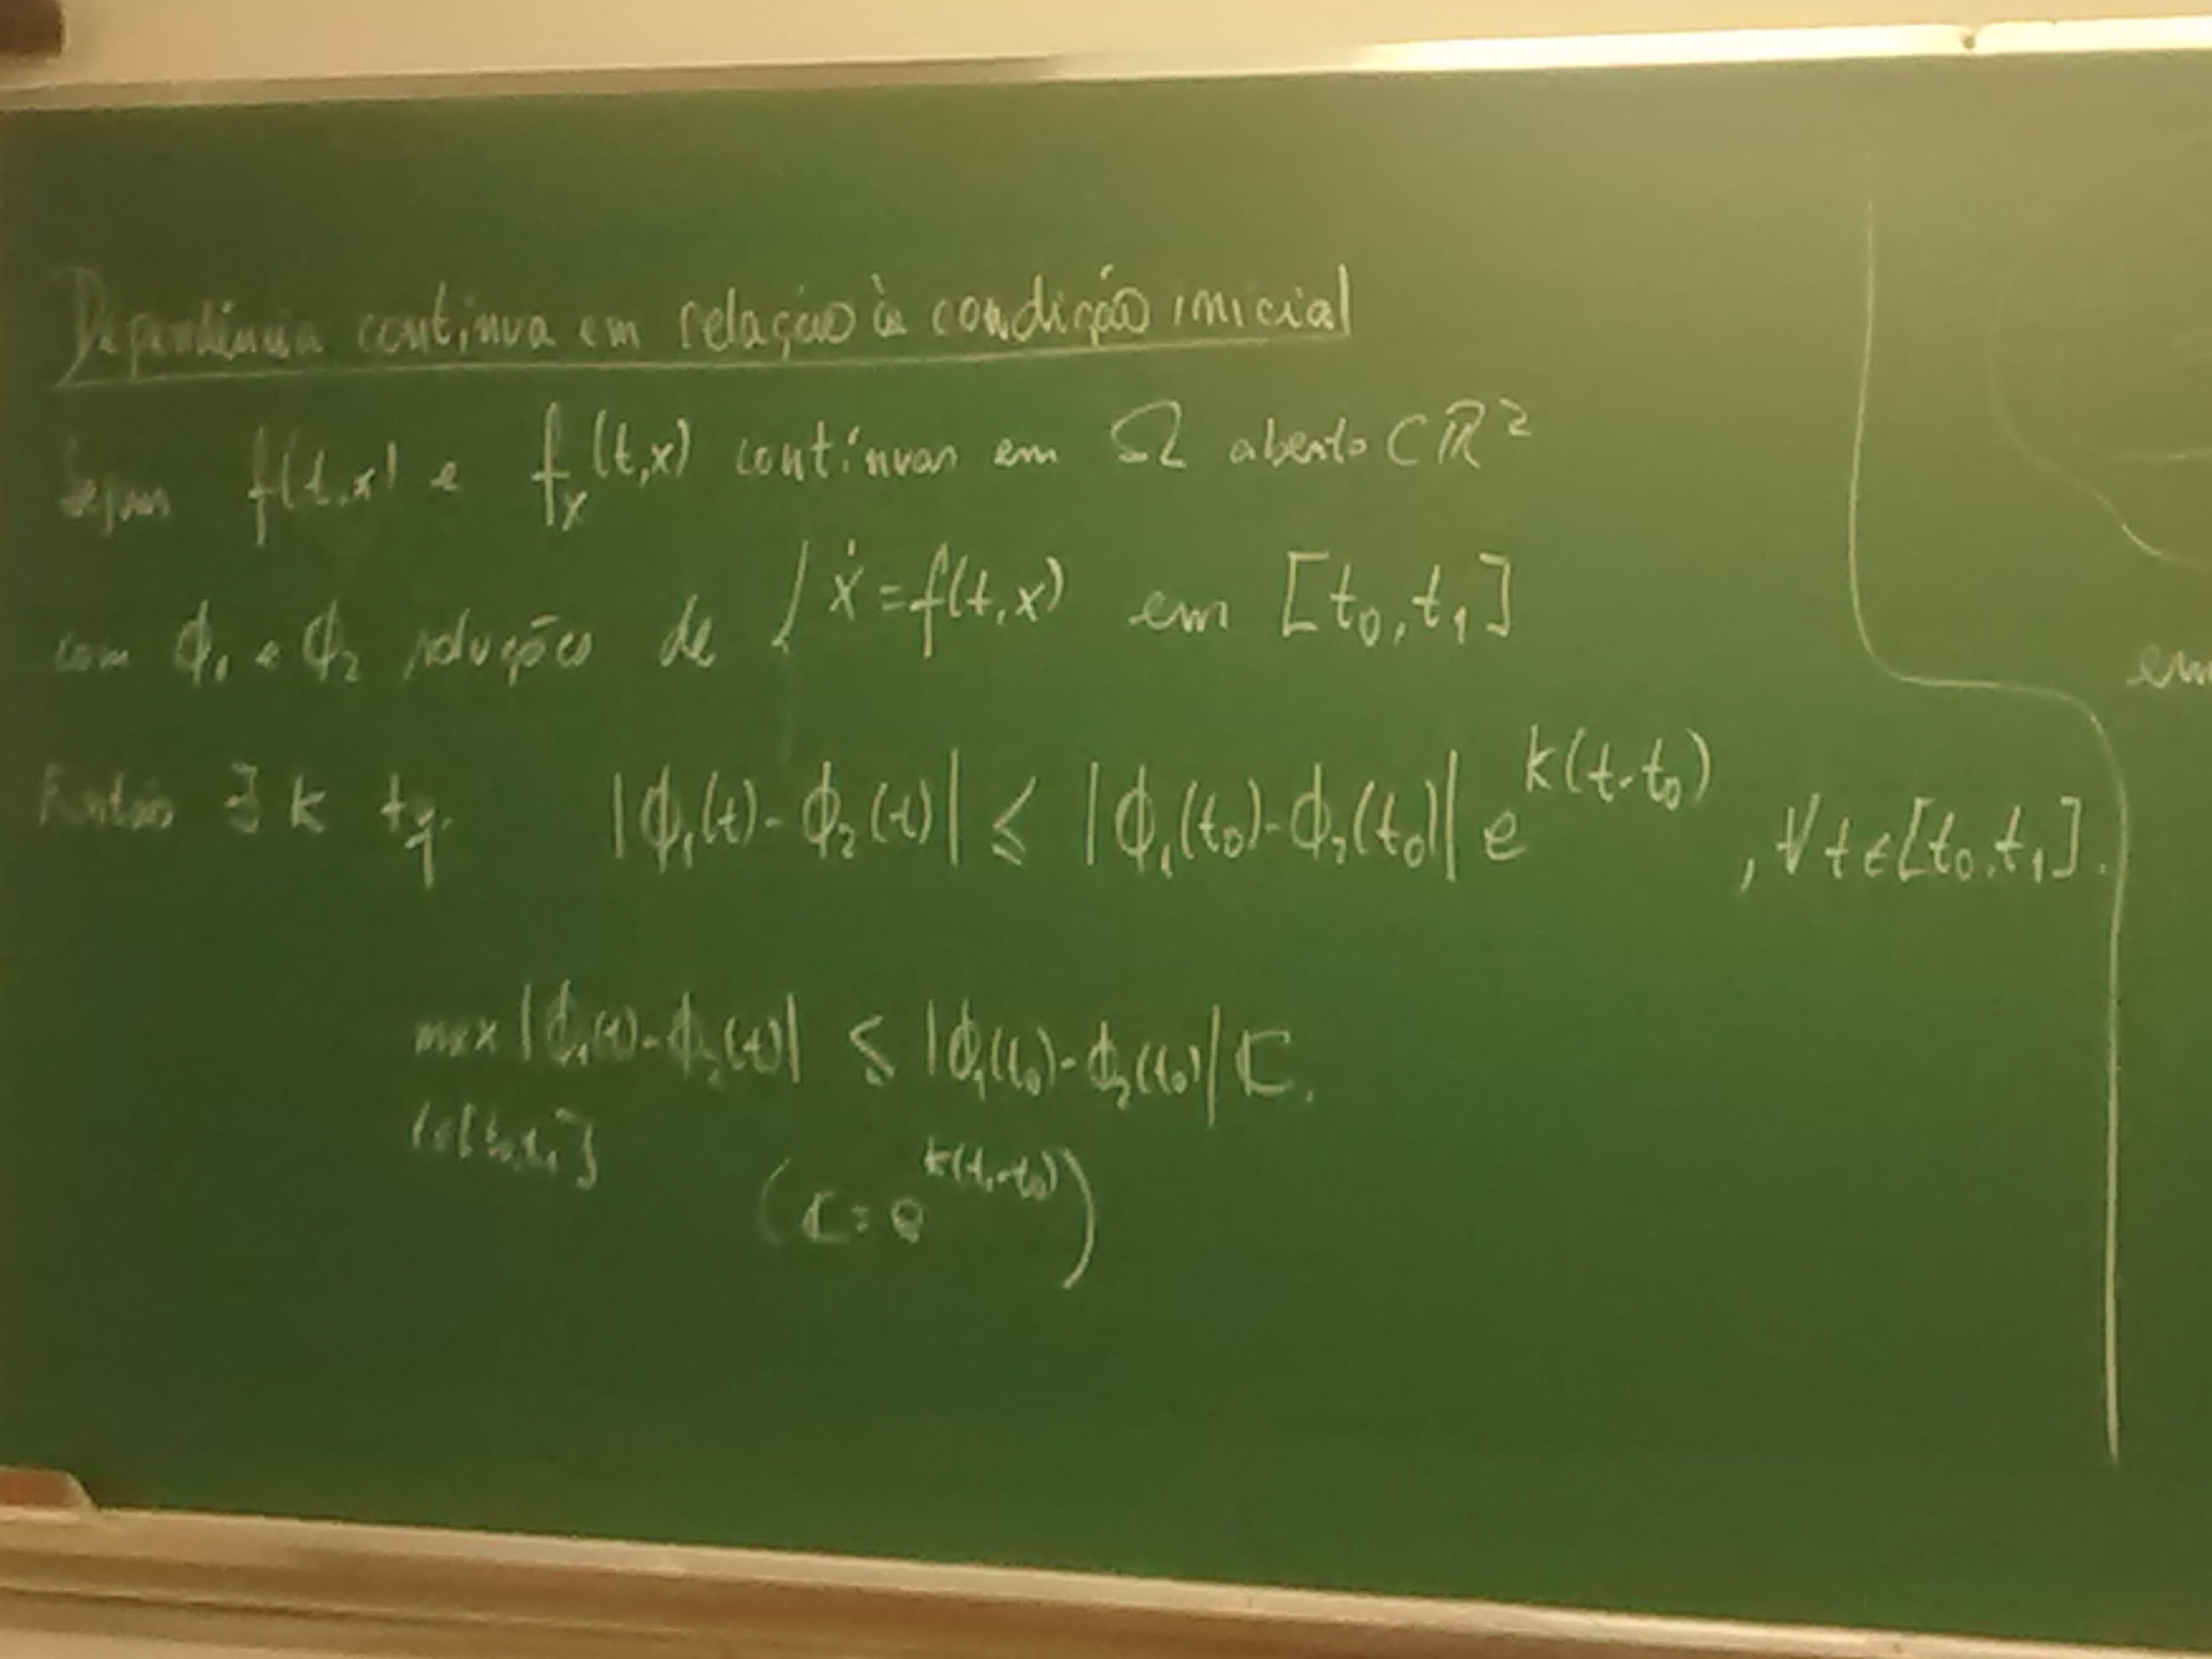 Dependência contínua em relação à condição inicial
Sejam f(t,x) e f_x(t,x) contínuas em Ω aberto ⊂ ℝ²
com ϕ₁ e ϕ₂ soluções de { ẋ = f(t,x) em [t₀,t₁]
em
Então ∃ k tq. |ϕ₁(t)-ϕ₂(t)| ≤ |ϕ₁(t₀)-ϕ₂(t₀)| e^{k(t-t₀)}, ∀t∈[t₀,t₁].
max |ϕ₁(t)-ϕ₂(t)| ≤ |ϕ₁(t₀)-ϕ₂(t₀)| C.
t∈[t₀,t₁]
(C = e^{k(t₁-t₀)})